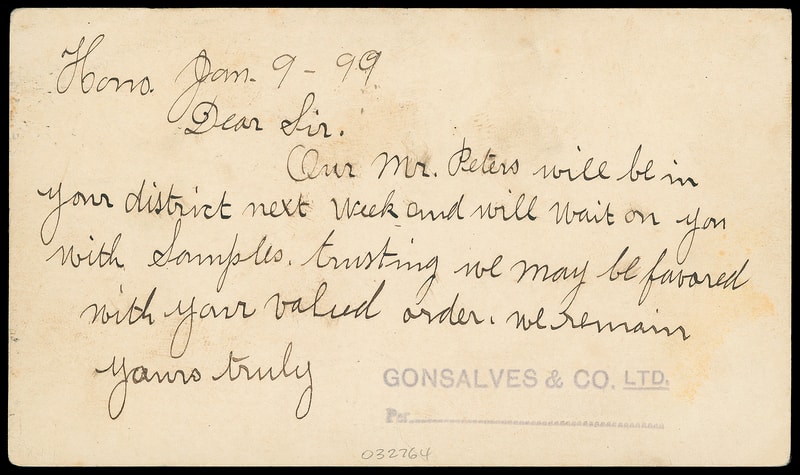 Hono. Jan. 9 - 99
Dear Sir.
Our Mr. Peters will be in
your district next week and will wait on you
with Samples. trusting we may be favored
with your valued order. we remain
yours truly
GONSALVES & CO. LTD.
Per
032764